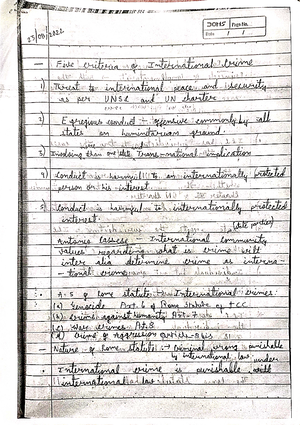 23/08/2022
DOMS Page No.
Date / /
— Five criteria of International Crime
1) Threat to international peace and security
as per UNSC and UN charter
2) Egregious conduct - offensive commonly by all
states on humanitarian ground.
3) Involving than one state Trans-national implication
4) Conduct is harmful to an internationally protected
person or his interest
5) Conduct is harmful to internationally protected
interest.
Antonio Cassese - International community
values regarding what is crime will
inter alia determine crime as interna-
-tional crime
A-5 of Rome statute - International crimes:
(a) Genocide Art. 6 of Rome Statute of ICC
(b) Crime against Humanity Art-7
(c) War crimes A-8
(d) Crime of aggression
— Nature of Rome Statute - criminal wrong punishable
by international law under
International crime is punishable with
international law